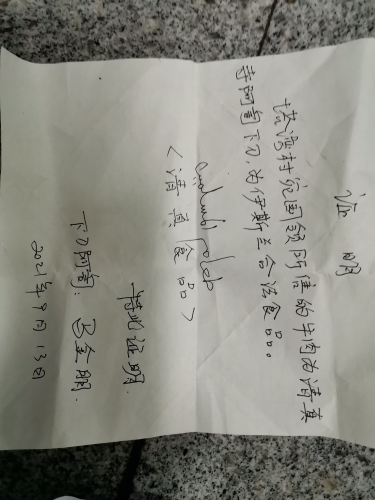 证明
湾村宛国领所售的牛肉为清真
寺阿訇下刀，为伊斯兰合法食品。
<清真食品>
特此证明.
下刀阿訇：马金明.
2021年9月13日